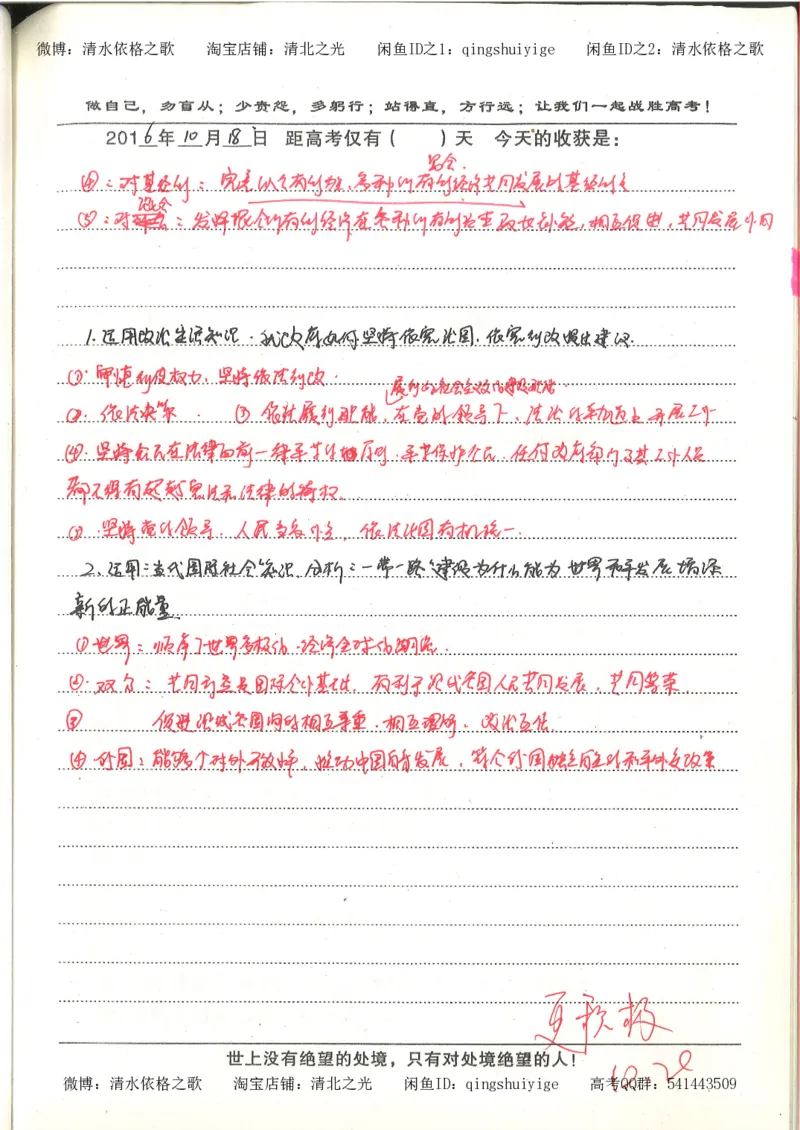 微博：清水依格之歌 淘宝店铺：清北之光 闲鱼ID之1：qingshuiyige 闲鱼ID之2：清水依格之歌
做自己，勿盲从；少责怨，多躬行；站得直，方行远；让我们一起战胜高考！
2016年10月18日 距高考仅有（ ）天 今天的收获是：
混合
④：对基经制：完善以公有制为，多种所有制经济共同发展的基经制度
混合
⑤：对：发挥混合所有制经济在各种所有制，相互促进，共同发展
1.运用政治生活知识.我政府如何坚持依宪治国.依宪行政提出建议.
①.审慎行使权力、坚持依法行政.
履行的社会主义建设职能
②.依法决策. ③ 依法履行职能，在党的领导下，法治轨道上开展工作
④.坚持公民在法律面前一律平等.平等保护公民 任何政府部门及其工作人员
都不得有超越宪法和法律的特权.
⑤.坚持党的领导.人民当家作主，依法治国有机统一.
2、运用:当代国际社会知识.分析:一带一路建设为什么能为世界和平发展增添
新的正能量.
①世界：顺应了世界多极化.经济全球化潮流.
②.双方：共同利益是国家合作基础.有利于沿线各国人民共同发展、共同繁荣.
③ 促进沿线各国间的相互尊重.相互理解、政治互信.
④中国：能够对外开放，推动中国自身发展，符合中国独立自主的和平外交政策
10.20
世上没有绝望的处境，只有对处境绝望的人！
微博：清水依格之歌 淘宝店铺：清北之光 闲鱼ID：qingshuiyige 高考QQ群：541443509